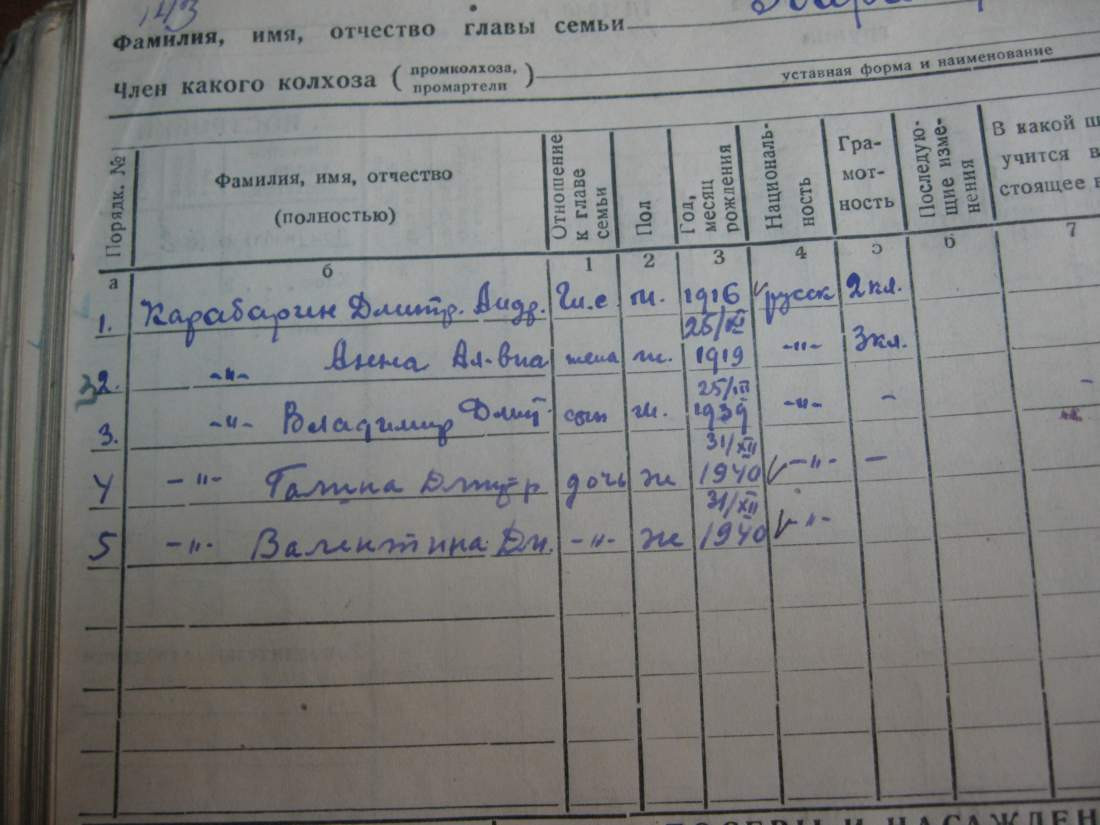 143
Фамилия, имя, отчество главы семьи
Член какого колхоза ( промколхоза, промартели )
уставная форма и наименование
Порядк. № Фамилия, имя, отчество (полностью) Отношение к главе семьи Пол Год, месяц рождения Националь-ность Гра-мот-ность Последую-щие изме-нения В какой ш учится в стоящее в
а б 1 2 3 4 5 6 7
1. Карабагин Дмитр. Андр. Гл.с. м. 1916 русск 2кл.
25/XII
2. -"- Анна Ал-вна жена ж. 1919 -"- 3кл.
25/III
3. -"- Владимир Дмит. сын м. 1939 -"- -
31/XII
4 -"- Галина Дмитр дочь ж 1940 -"- -
31/XII
5 -"- Валентина Дм. -"- ж 1940 -"-